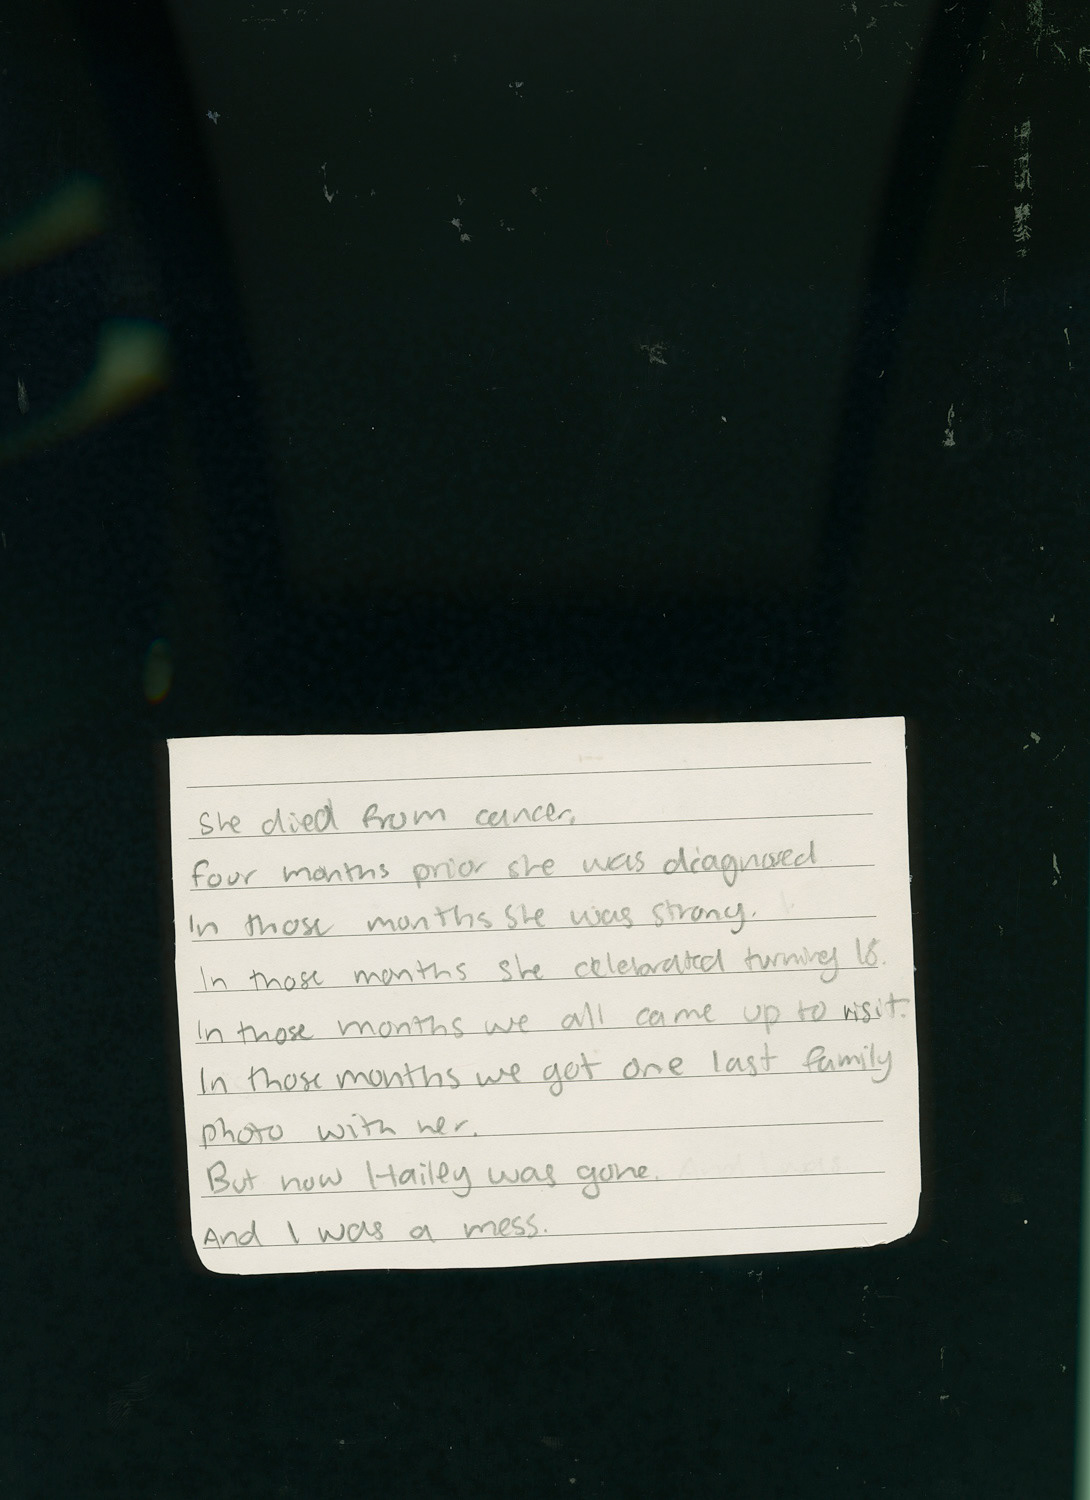 She died from cancer.
four months prior she was diagnosed
In those months she was strong.
In those months she celebrated turning 18.
In those months we all came up to visit.
In those months we got one last family
photo with her.
But now Hailey was gone.
And I was a mess.